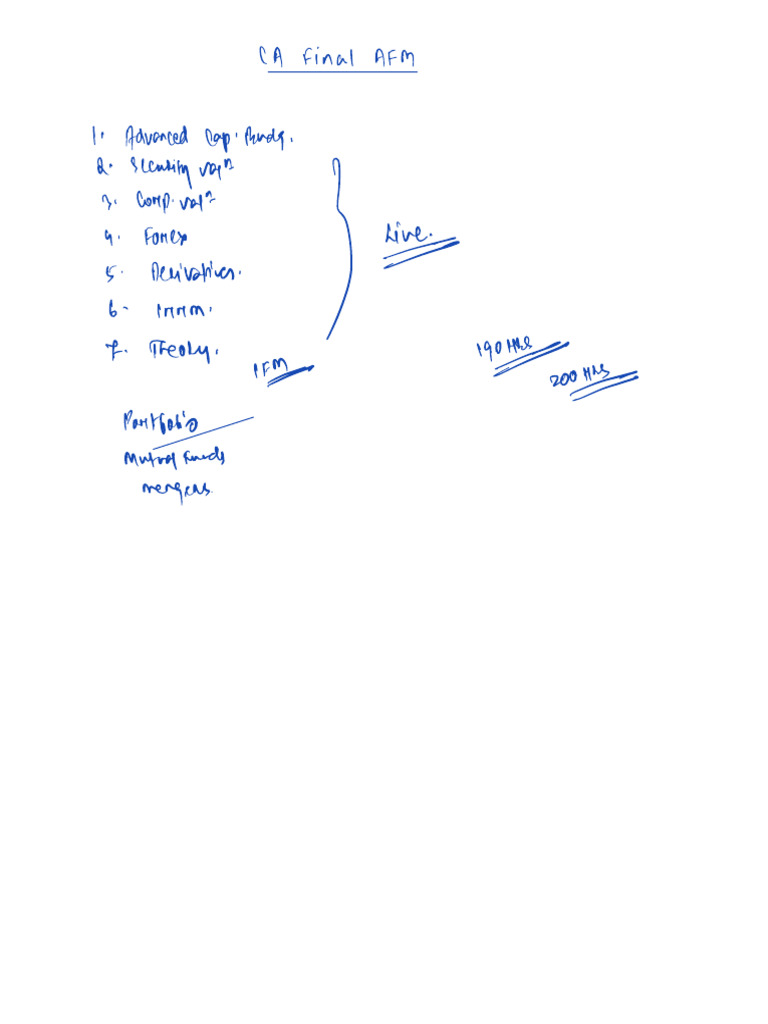 CA Final AFM
1. Advanced Cap. Budg.
2. Security valⁿ
3. Comp. valⁿ
4. Forex
5. Derivatives.
6. IRRM.
7. Theory.
Live.
IFM
190 HRS
200 HRS
Portfolio
Mutual Funds
mergers.